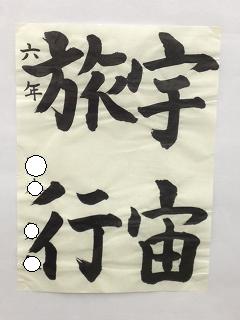 宇宙
旅行
六年